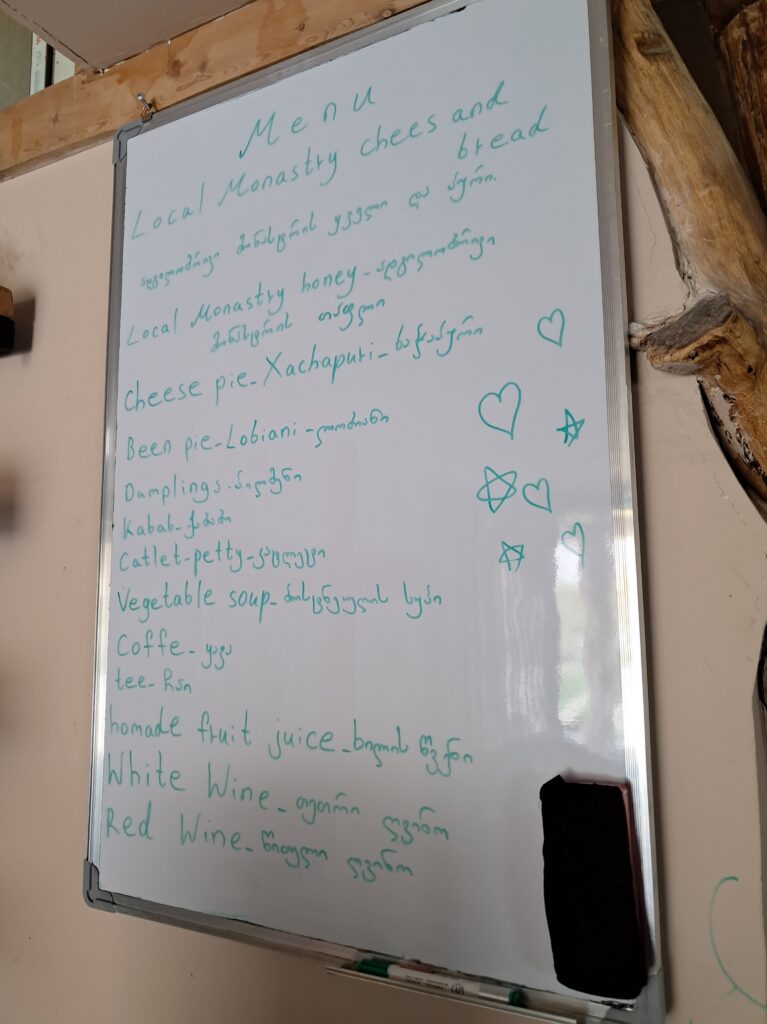 Menu
Local Monastry chees and
bread
ადგილობრივი მონასტრის ყველი და პური.
Local Monastry honey - ადგილობრივი
მონასტრის თაფლი
Cheese pie - Xachapuri - ხაჭაპური
Been pie - Lobiani - ლობიანი
Dumplings - პილმენი
Kabab - ქაბაბი
Catlet - petty - კატლეტი
Vegetable soup - ბოსტნეულის სუპი
Coffe - ყავა
tee - ჩაი
homade fruit juice - ხილის წვენი
White Wine - თეთრი ღვინო
Red Wine - წითელი ღვინო